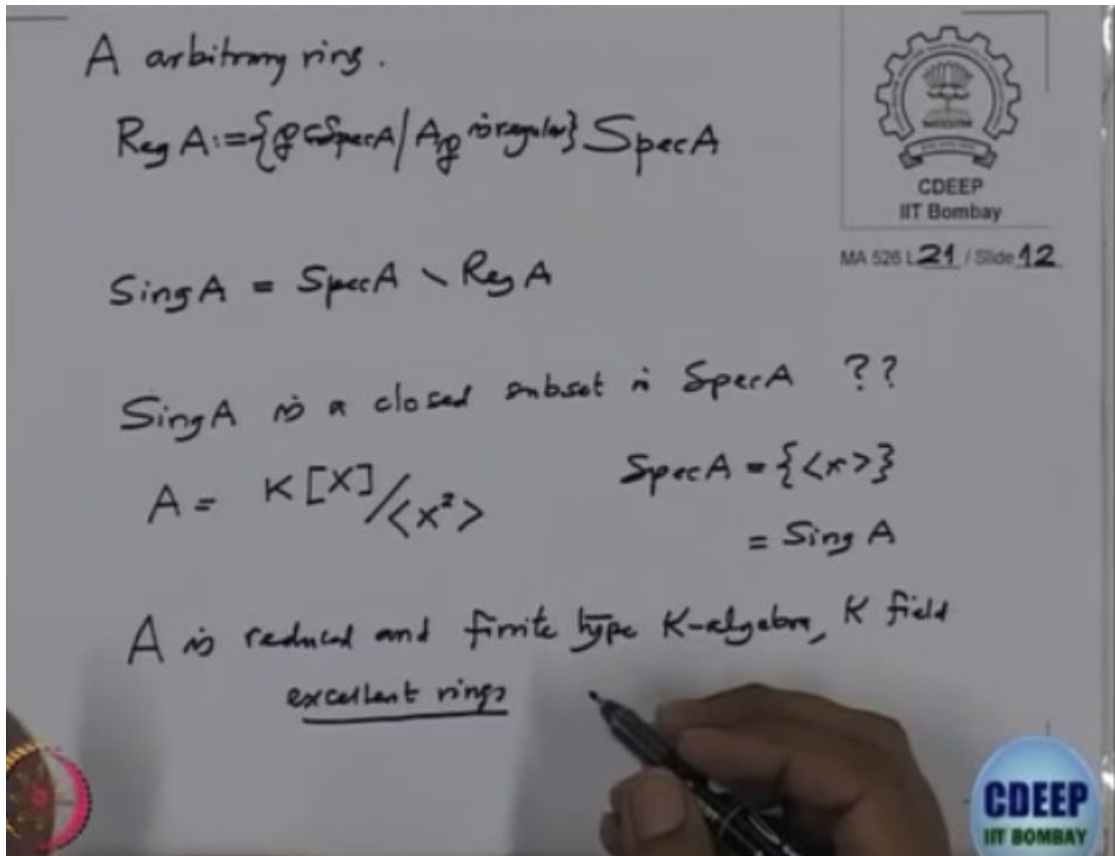 A arbitrary ring.
Reg A := {𝔭 ∈ Spec A / A𝔭 is regular} Spec A
CDEEP
IIT Bombay
MA 526 L 21 / Slide 12
Sing A = Spec A \ Reg A
Sing A is a closed subset in Spec A ??
A = K[X]/<X²>
Spec A = {<x>}
= Sing A
A is reduced and finite type K-algebra, K field
excellent rings
CDEEP
IIT BOMBAY